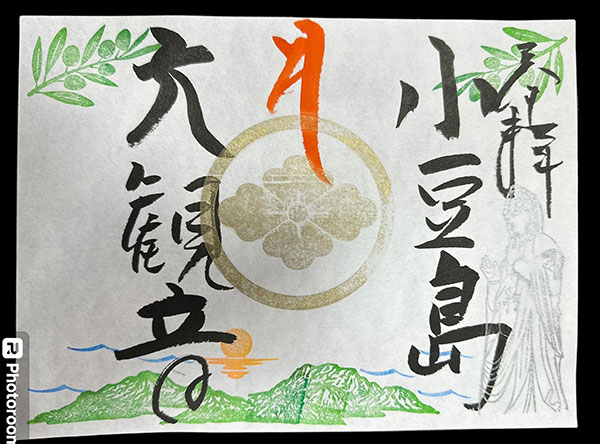 奉拝
小豆島
大観音
Photoroom